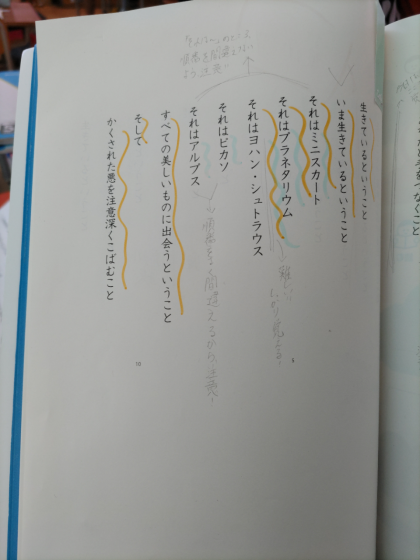 生きているということ
いま生きているということ
それはミニスカート
それはプラネタリウム
それはヨハン・シュトラウス
それはピカソ
それはアルプス
すべての美しいものに出会うということ
そして
かくされた悪を注意深くこばむこと
順番をよく間違えるから注意!